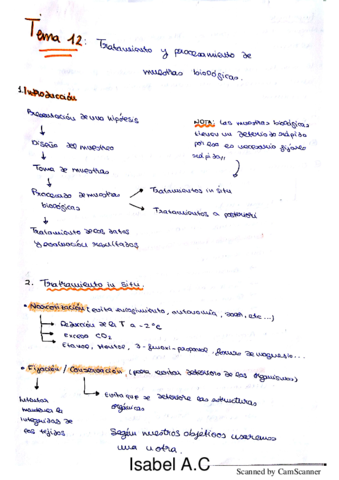 Tema 12: Tratamiento y procesamiento de
muestras biológicas.
1. Introducción
Presentación de una hipótesis
Diseño del muestreo
Toma de muestras
Procesado de muestras
biológicas
Tratamientos in situ
Tratamientos a posteriori
Tratamiento de los datos
y evaluación resultados
NOTA: Las muestras biológicas
llevan un deterioro rápido
por eso es necesario fijarlas
rápida//
2. Tratamiento in situ.
• Narcotización (evita encogimiento, autonomía, etc...)
Reducción de la T a -2°C
Exceso CO2
Etanol, Mentol, cloruro de magnesio...
• Fijación / Conservación (para evitar deterioro de los organismos)
Intentar
mantener la
integridad de
los tejidos
Evita que se deteriore las estructuras
orgánicas
Según nuestros objetivos usaremos
una u otra.
Isabel A.C
Scanned by CamScanner